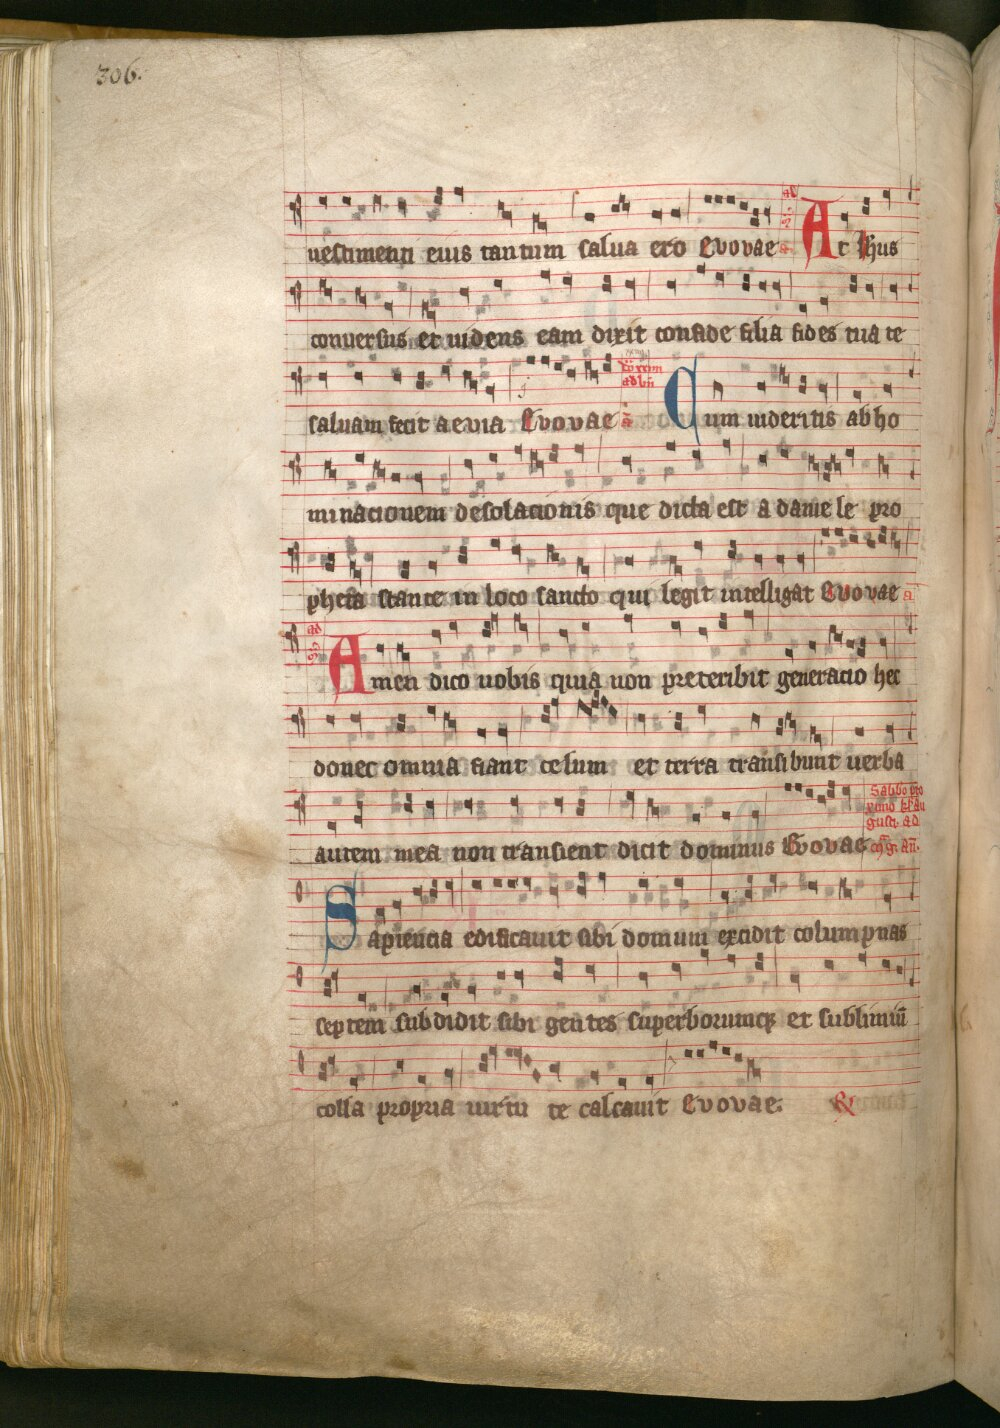 306.
uestimenti eius tantum salua ero Evovae At ihus
conuersus et uidens eam dixit confide filia fides tua te
saluam fecit aevia Evovae Cum uideritis abho
minacionem desolacionis que dicta est a daniele pro
pheta stante in loco sancto qui legit intelligat Evovae
ad
Amen dico uobis quia non preteribit generacio hec
donec omnia fiant celum et terra transibunt uerba
Sabbo pro
autem mea non transient dicit dominus Evovae
Sapiencia edificauit sibi domum excidit columpnas
septem subdidit sibi gentes superborumq et sublimiū
colla propria uirtute calcauit Evovae.